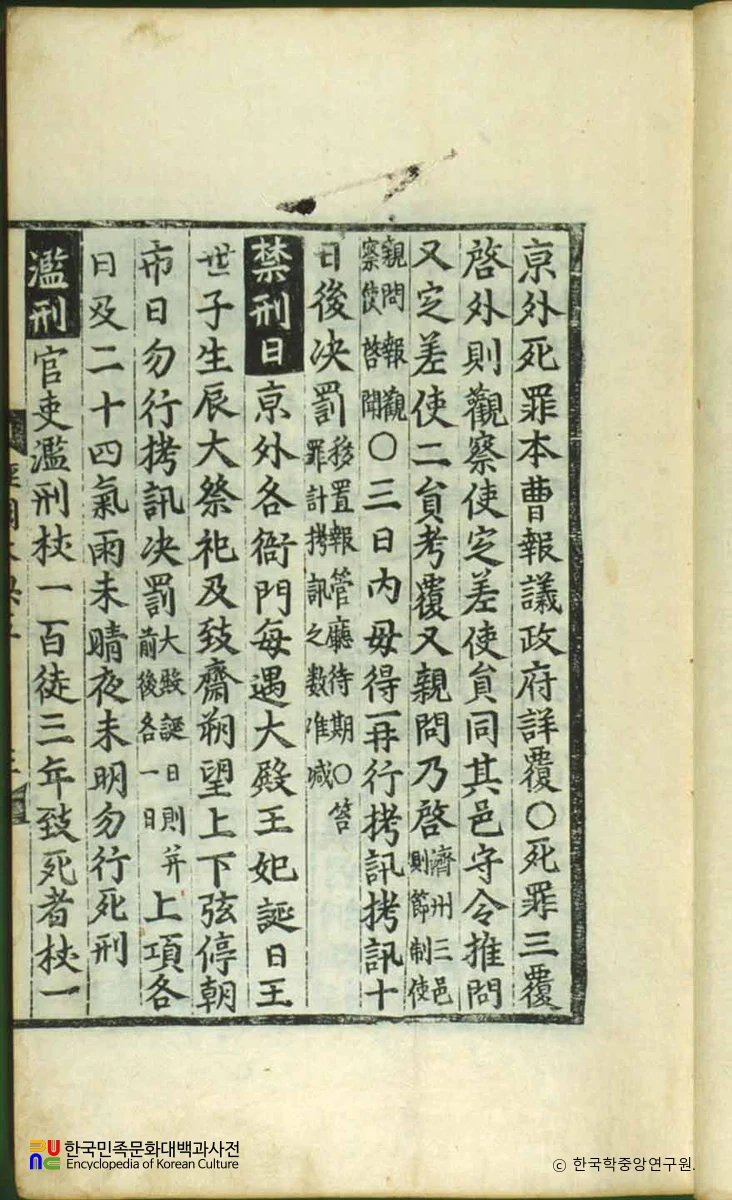 亰外死罪本曹報議政府詳覆〇死罪三覆
啓外則觀察使定差使貟同其邑守令推問
又定差使二貟考覆又親問乃啓濟州三邑則節制使
親問報觀察使啓聞〇三日內毋得再行拷訊拷訊十
日後决罰移置報管廳待期〇笞罪計拷訊之數准减
禁刑日亰外各衙門每遇大殿王妃誕日王
世子生辰大祭祀及致齋朔望上下弦停朝
市日勿行拷訊决罰大殿誕日則并前後各一日上項各
日及二十四氣雨未晴夜未明勿行死刑
濫刑官吏濫刑杖一百徒三年致死者杖一
한국민족문화대백과사전
Encyclopedia of Korean Culture
ⓒ 한국학중앙연구원.